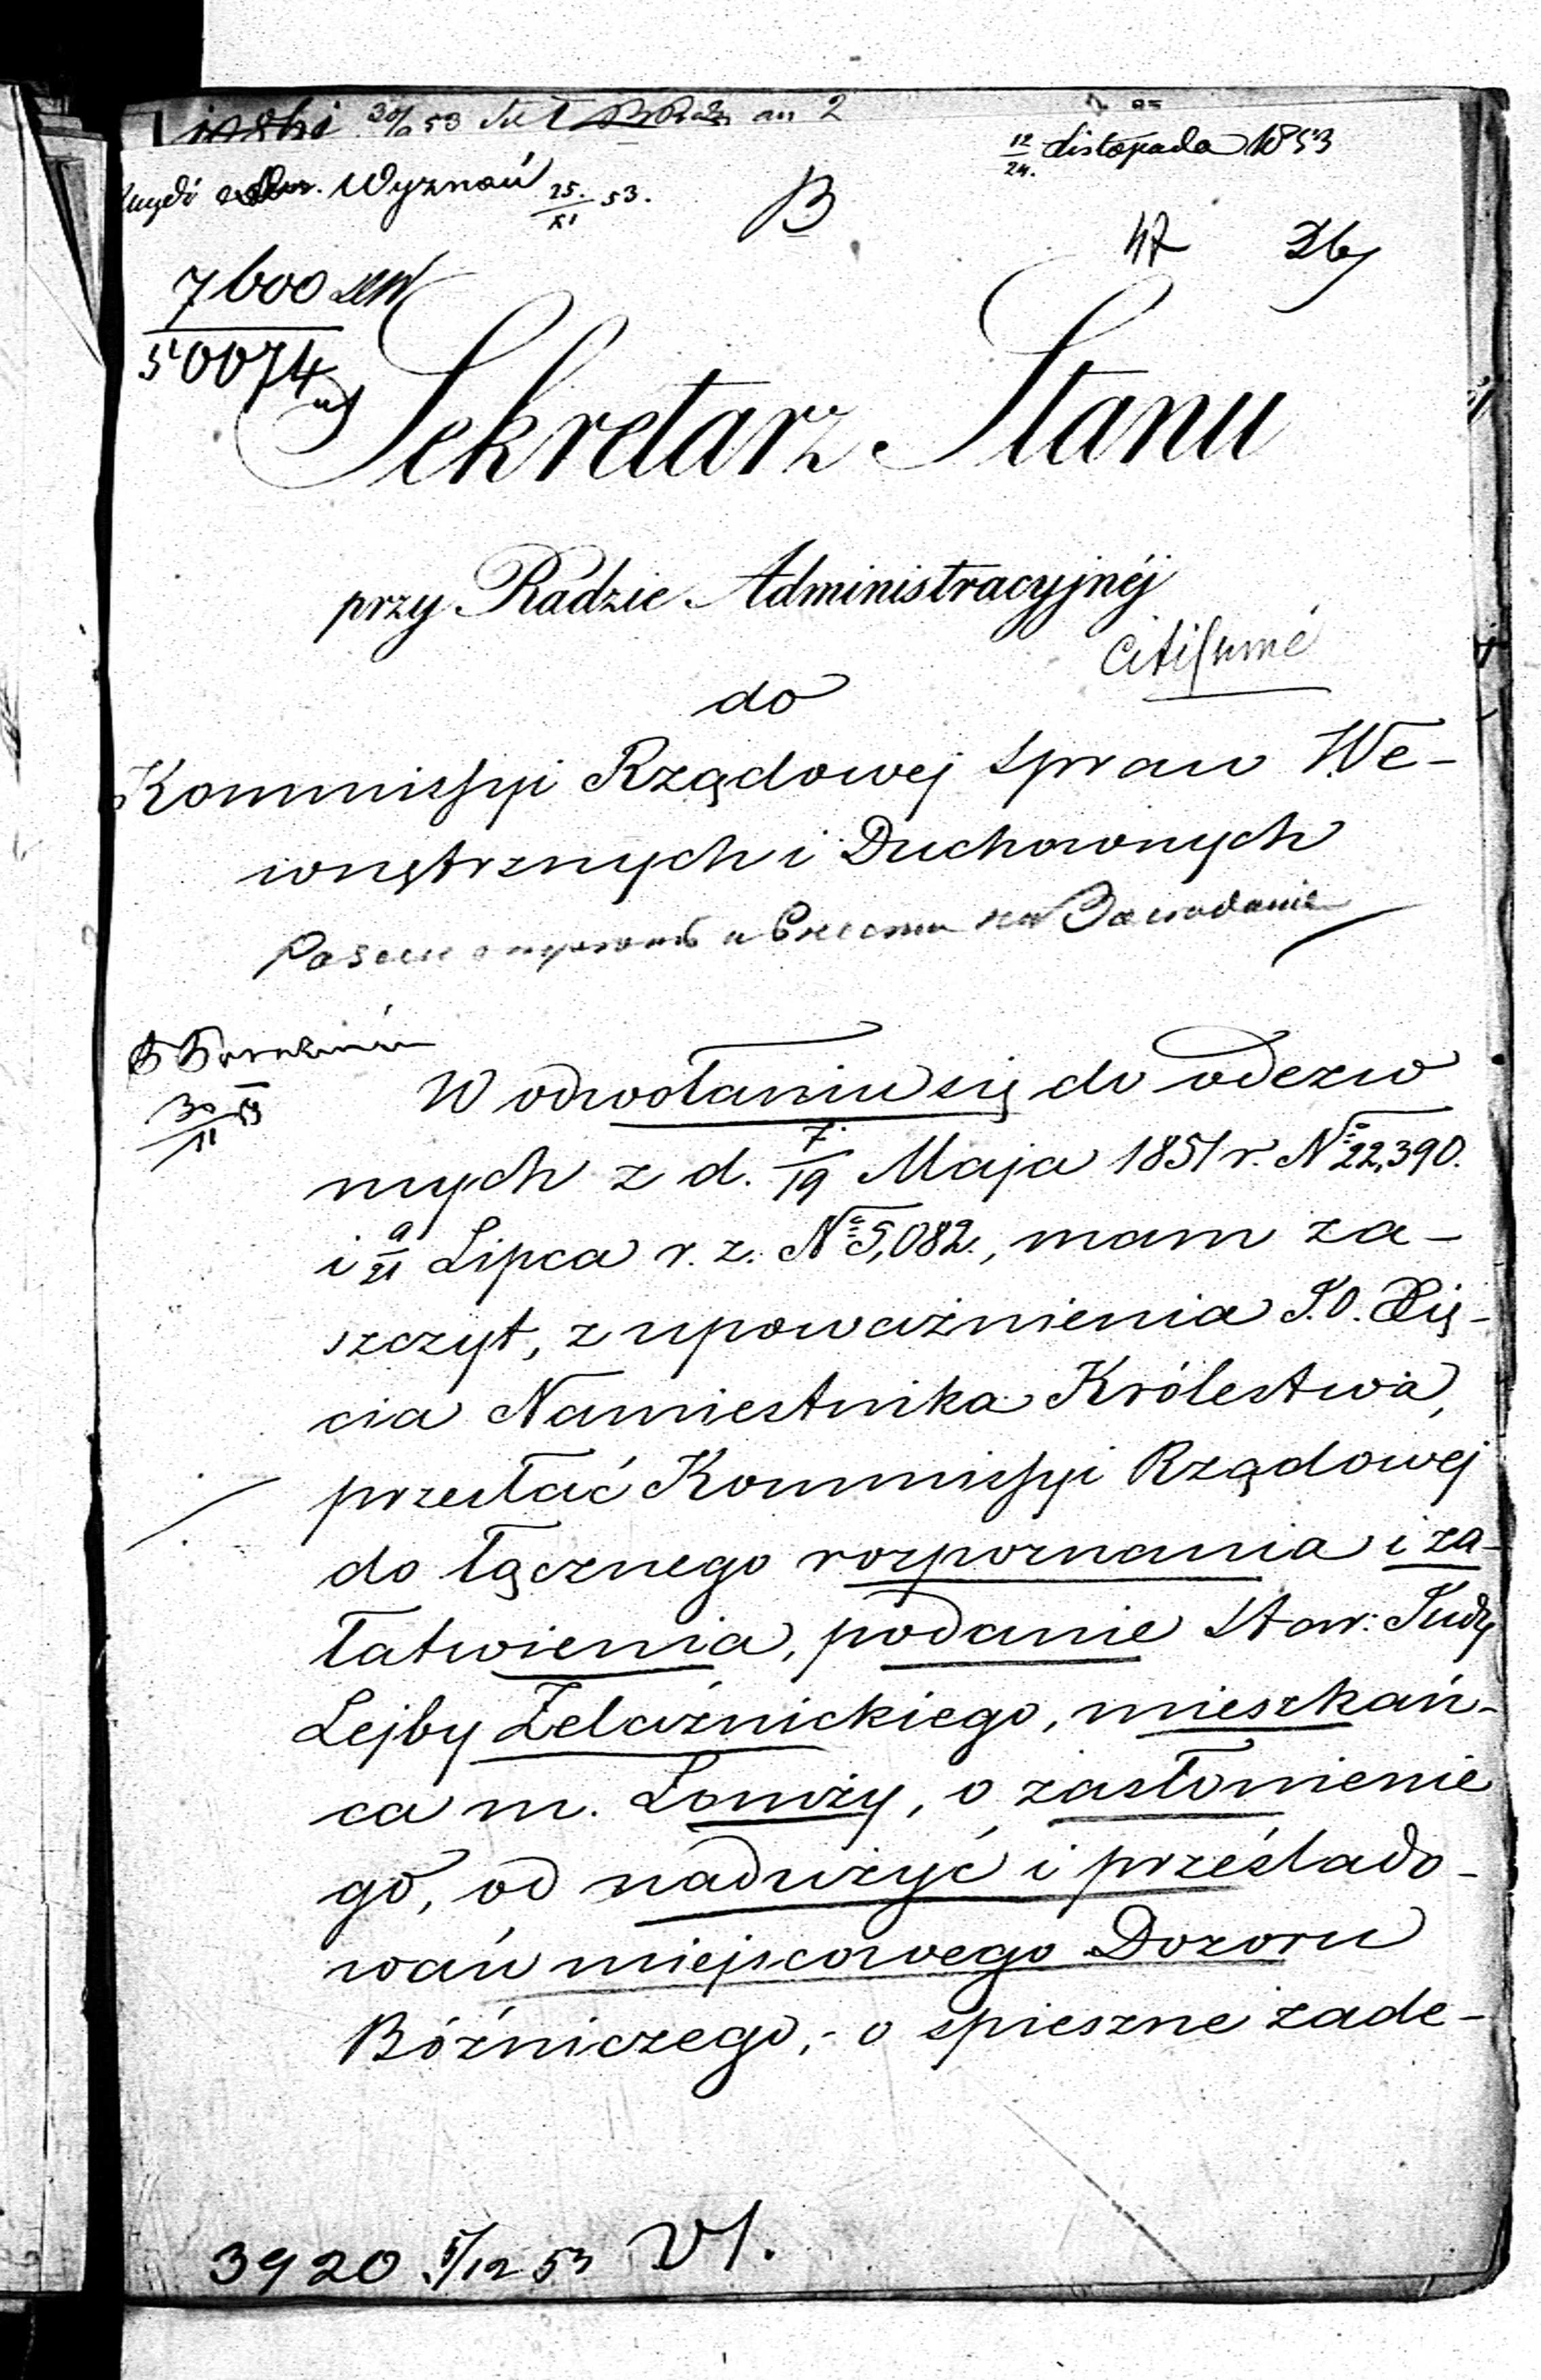 12/24. Listopada 1853
Wyznań 25./XI 53.
B
47
7600
50074
Sekretarz Stanu
przy Radzie Administracyjnéj
citissime
do
Kommissyi Rządowej Spraw We-
wnętrznych i Duchownych
30/XI 53
W odwołaniu się do odezw
mych z d. 7/19 Maja 1851 r. № 22,390.
i 9/21 Lipca r. z. № 5,082., mam za-
szczyt, z upoważnienia J.O. Xię-
cia Namiestnika Królestwa,
przesłać Kommissyi Rządowej
do łącznego rozpoznania i za-
łatwienia, podanie Star: Judy
Lejby Żelaźnickiego, mieszkań-
ca m. Łomży, o zasłonienie
go, od nadużyć i prześlado-
wań miejscowego Dozoru
Bóźniczego; - o spieszne zade-
3920 5/12 53 VI.